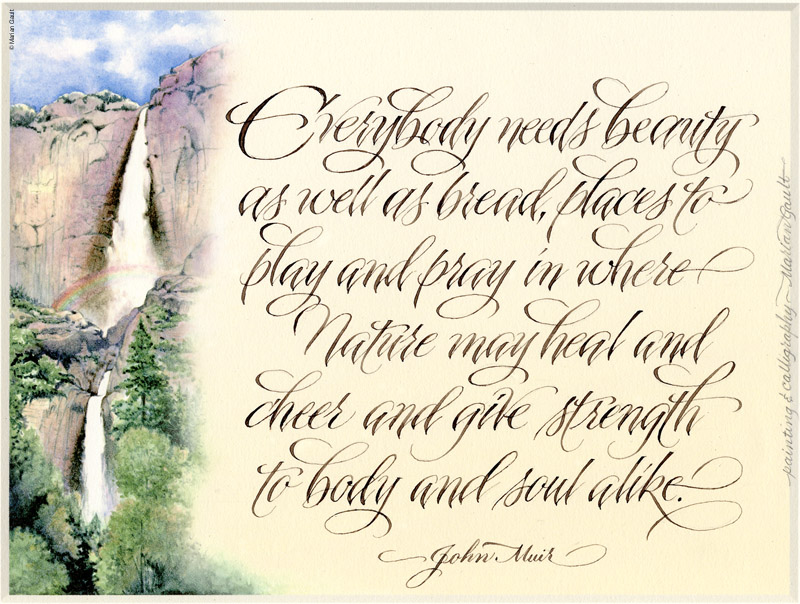 © Marian Gault
Everybody needs beauty
as well as bread, places to
play and pray in where
Nature may heal and
cheer and give strength
to body and soul alike.
John Muir
painting & calligraphy Marian Gault